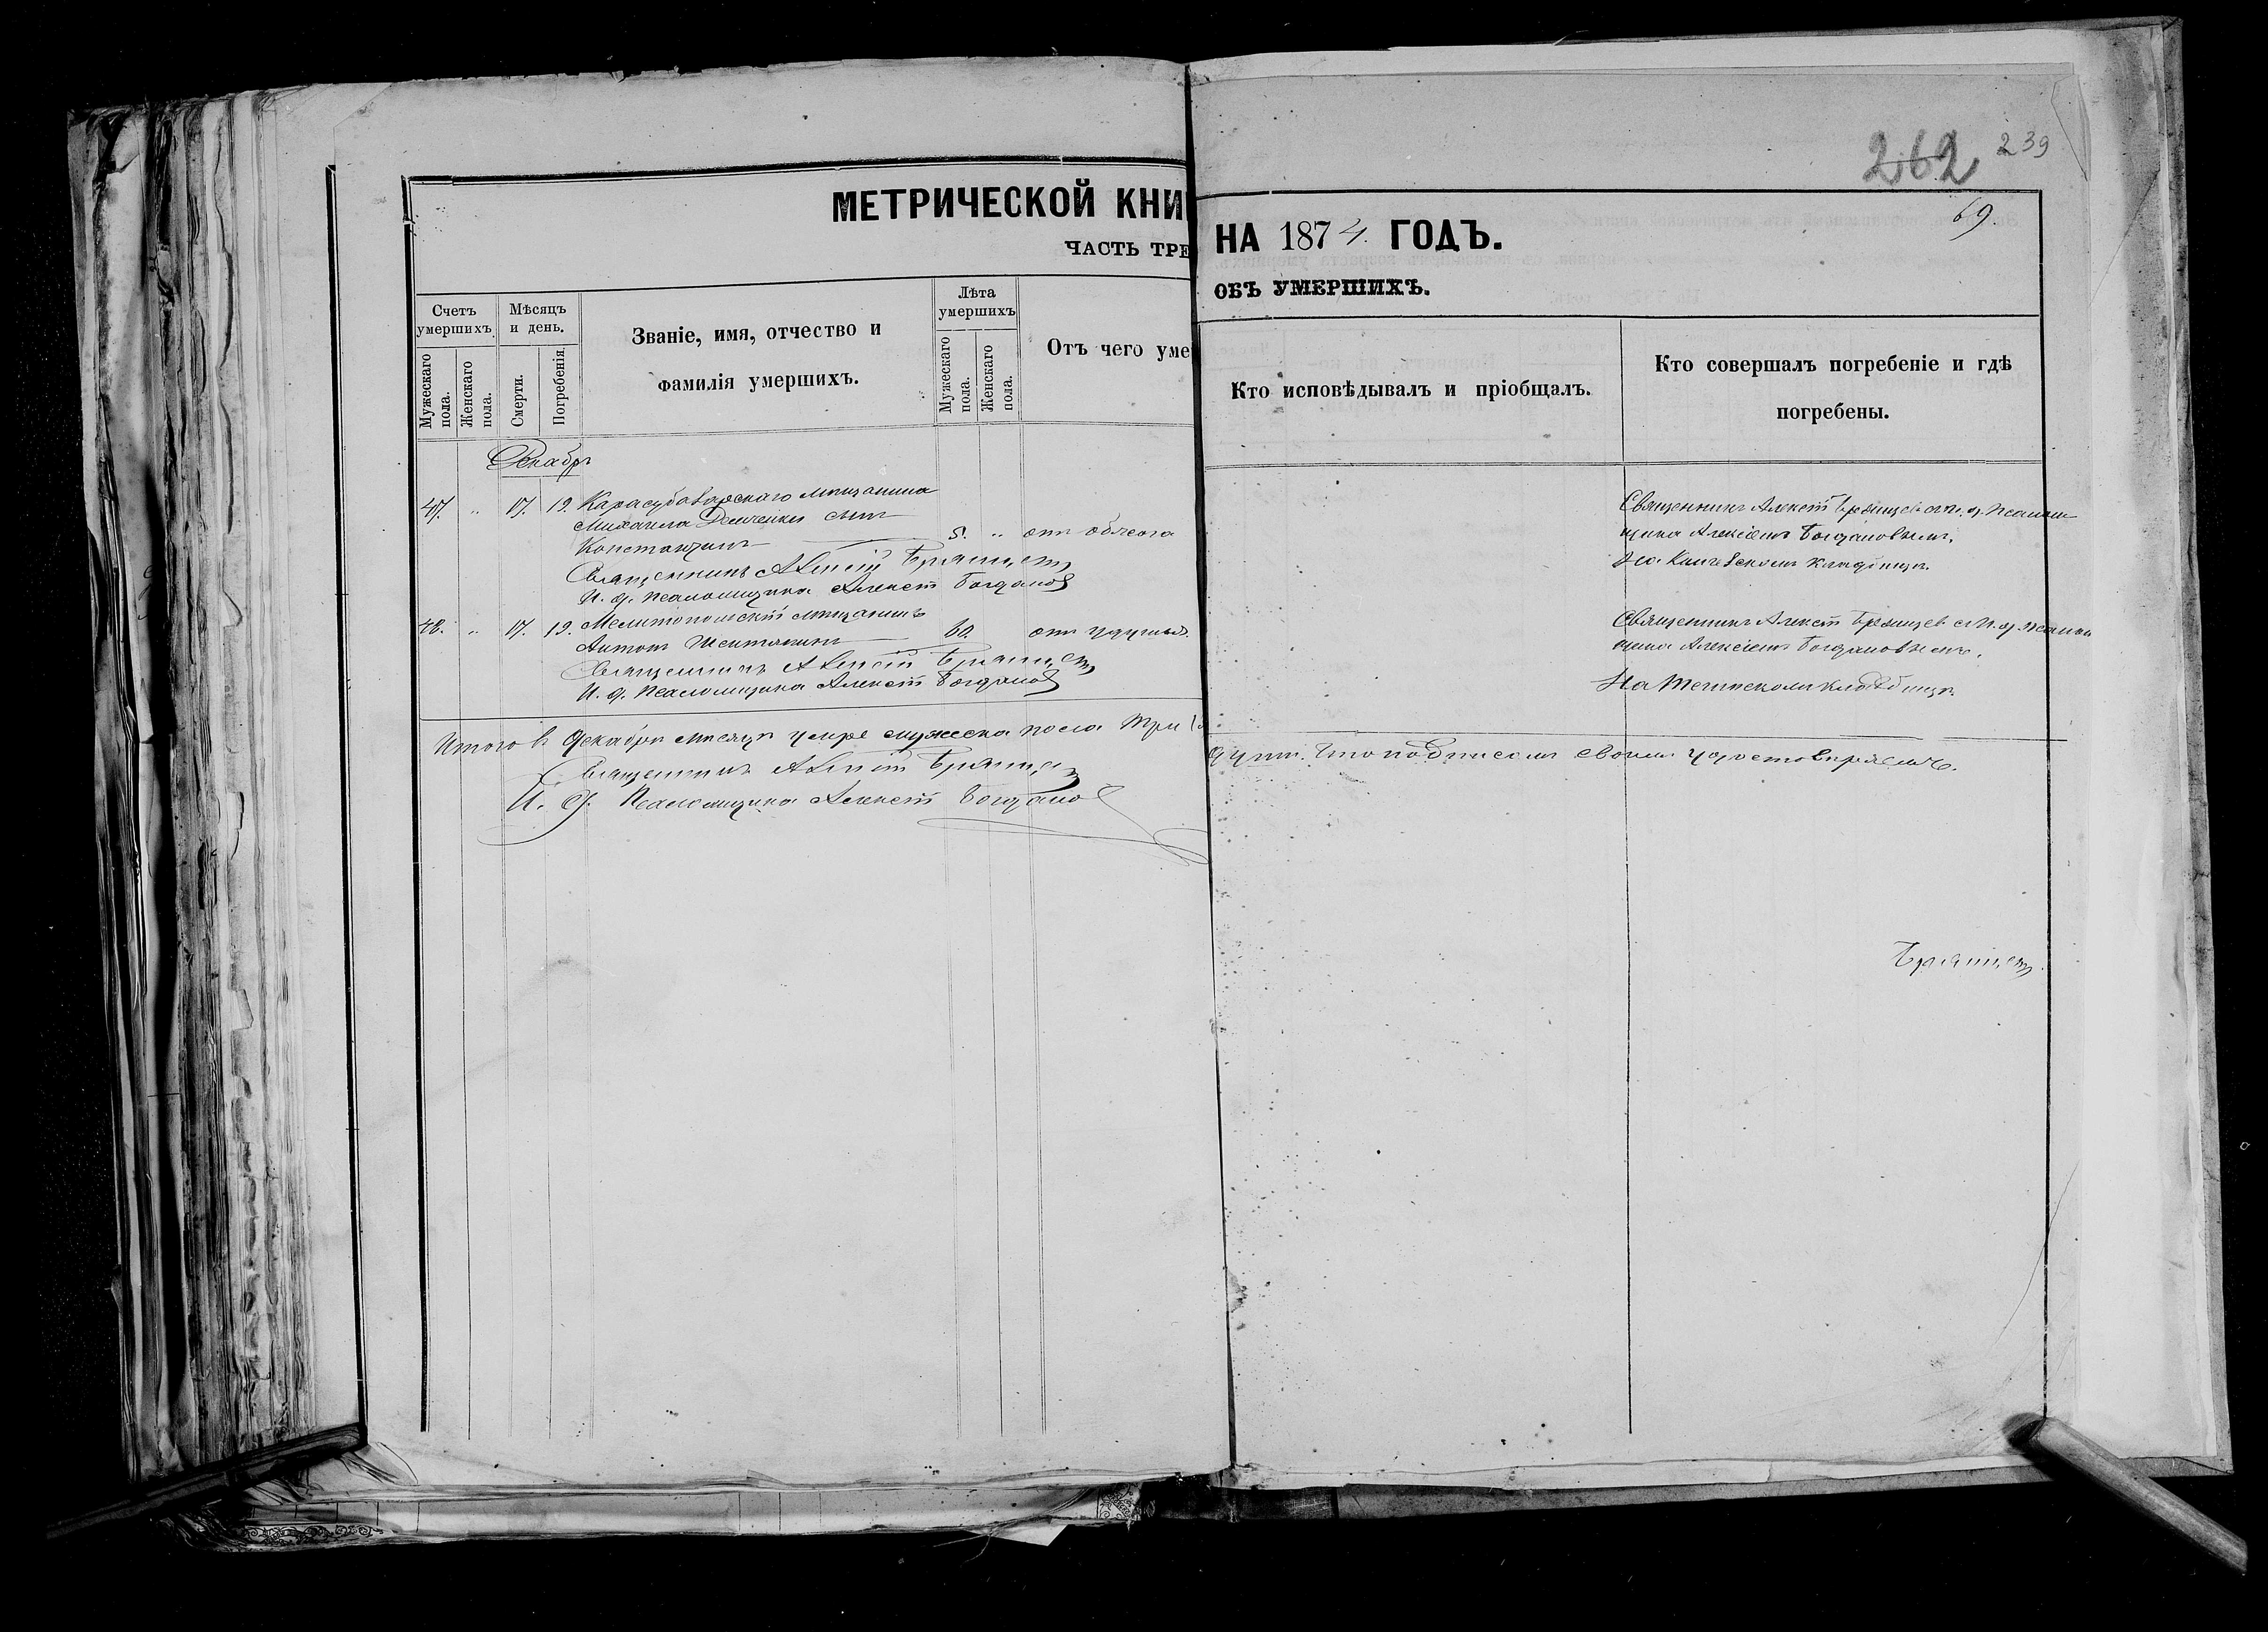 262 239
69.
МЕТРИЧЕСКОЙ КНИ
НА 1874. ГОДЪ.
ЧАСТЬ ТРЕ
ОБЪ УМЕРШИХЪ.
Счетъ умершихъ.
Мужескаго пола.
Женскаго пола.
Мѣсяцъ и день.
Смерти.
Погребенія.
Званіе, имя, отчество и
фамилія умершихъ.
Лѣта умершихъ
Мужескаго пола.
Женскаго пола.
Отъ чего уме
Кто исповѣдывалъ и пріобщалъ.
Кто совершалъ погребеніе и гдѣ
погребены.
Декабрь
47. " 17. 19. Карасубазарскаго мѣщанина
Михаила Демченки сынъ
Константинъ 5. " отъ
Священникъ Алексій Брянцевъ
И. д. Псаломщика Алексѣй Богдановъ
Священникъ Алексѣй Брянцевъ съ И. д. Псалом
щика Алексіемъ Богдановымъ,
На кладбищѣ.
48. " 17. 19. Мелитопольскій мѣщанинъ
Антонъ 60. отъ
Священникъ Алексій Брянцевъ
И. д. Псаломщика Алексѣй Богдановъ
Священникъ Алексѣй Брянцевъ съ И. д. Псалом
щика Алексіемъ Богдановымъ.
На кладбищѣ
Итого въ Декабрѣ мѣсяцѣ умре мужеска пола три
душъ. Что подписомъ своимъ удостовѣряемъ.
Священникъ Алексій Брянцевъ
И. д. Псаломщика Алексѣй Богдановъ
Брянцевъ